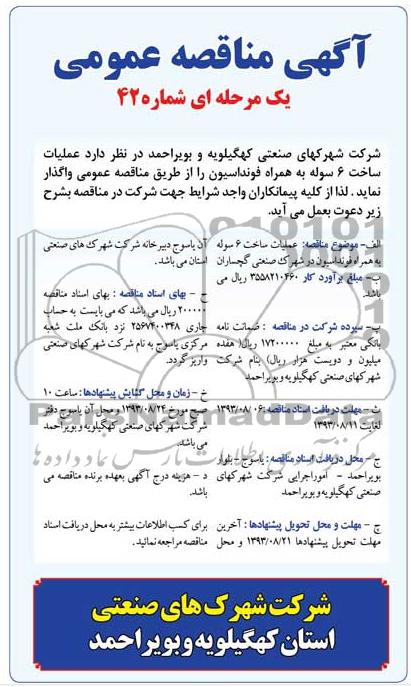 آگهی مناقصه عمومی
یک مرحله ای شماره ۴۲
شرکت شهرکهای صنعتی کهگیلویه و بویراحمد در نظر دارد عملیات
ساخت ۶ سوله به همراه فونداسیون را از طریق مناقصه عمومی واگذار
نماید . لذا از کلیه پیمانکاران واجد شرایط جهت شرکت در مناقصه بشرح
زیر دعوت بعمل می آید.
الف- موضوع مناقصه: عملیات ساخت ۶ سوله
به همراه فونداسیون در شهرک صنعتی گچساران
ب- مبلغ برآورد کار ۳۵۵۸۲۱۰۴۶۰ ریال می
باشد.
پ- سپرده شرکت در مناقصه : ضمانت نامه
بانکی معتبر به مبلغ ۱۷۲۰۰۰۰۰ ریال( هفده
میلیون و دویست هزار ریال) بنام شرکت
شهرکهای صنعتی کهگیلویه و بویراحمد
ث- مهلت دریافت اسناد مناقصه : ۱۳۹۳/۰۸/۰۶
لغایت ۱۳۹۳/۰۸/۱۱
ج - محل دریافت اسناد مناقصه : یاسوج - بلوار
بویراحمد - امور اجرایی شرکت شهرکهای
صنعتی کهگیلویه و بویراحمد
چ - مهلت و محل تحویل پیشنهادها : آخرین
مهلت تحویل پیشنهادها ۱۳۹۳/۰۸/۲۱ و محل
آن یاسوج دبیرخانه شرکت شهرک های صنعتی
استان می باشد.
ح - بهای اسناد مناقصه : بهای اسناد مناقصه
۲۰۰۰۰۰ ریال می باشد که می بایست به حساب
جاری ۲۵۶۷۴۰۰۳۴۸ نزد بانک ملت شعبه
مرکزی یاسوج به نام شرکت شهرکهای صنعتی
واریز گردد.
خ - زمان و محل گشایش پیشنهادها : ساعت ۱۰
صبح مورخ ۱۳۹۳/۰۸/۲۴ و محل آن یاسوج دفتر
شرکت شهرکهای صنعتی کهگیلویه و بویراحمد
می باشد.
د - هزینه درج آگهی بعهده برنده مناقصه می
باشد.
برای کسب اطلاعات بیشتر به محل دریافت اسناد
مناقصه مراجعه نمائید.
شرکت شهرک های صنعتی
استان کهگیلویه و بویر احمد